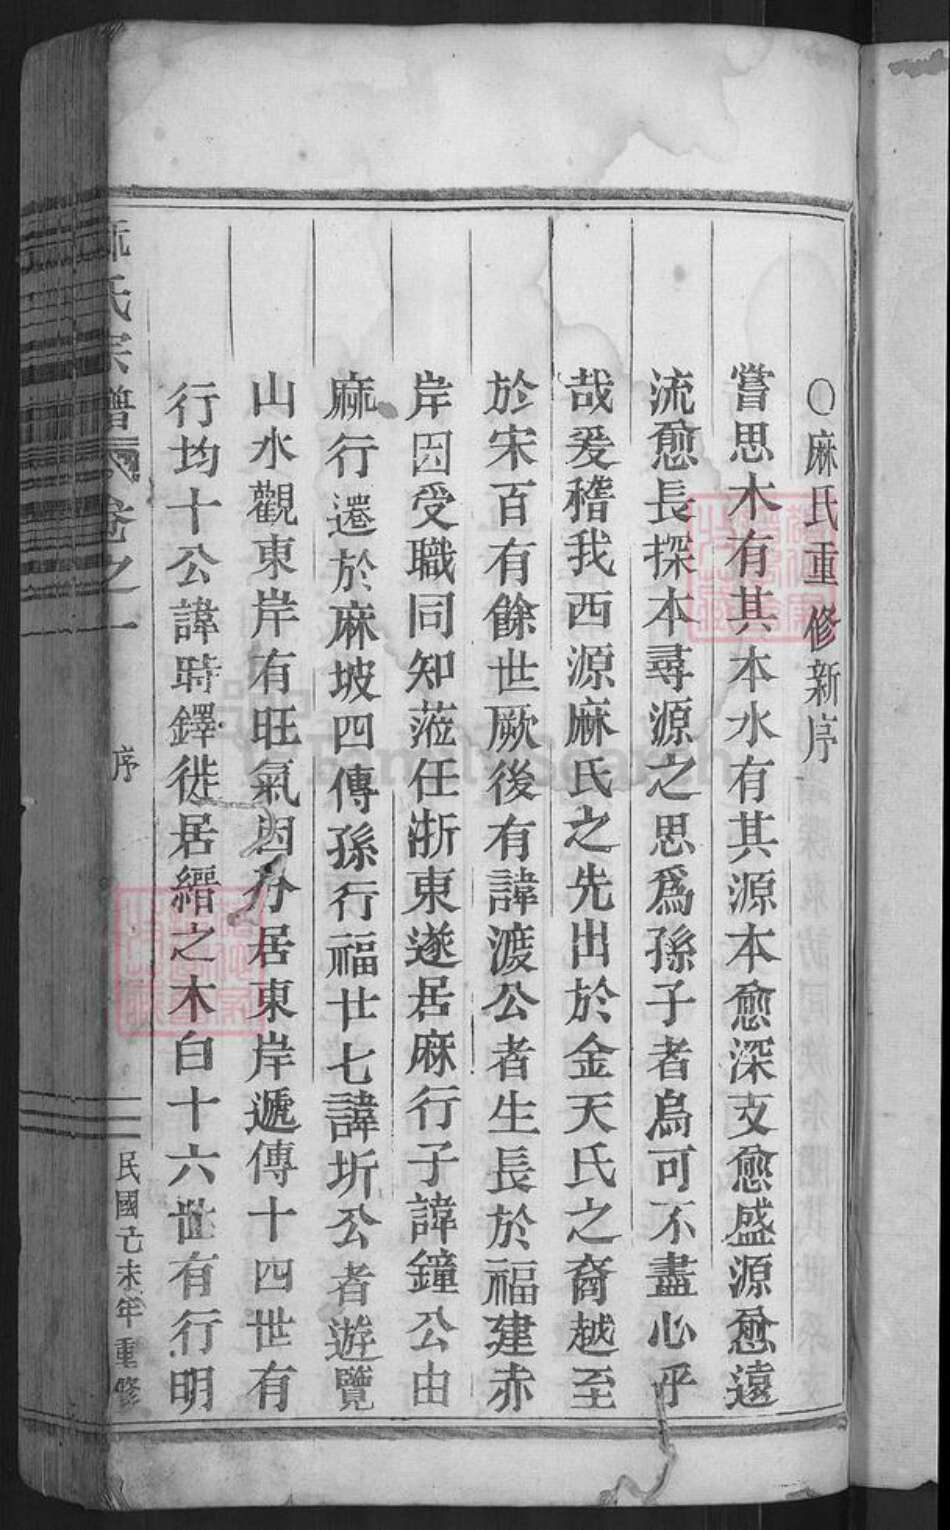 ○麻氏重修新序
嘗思木有其本水有其源本愈深支愈盛源愈遠
流愈長探本尋源之思爲孫子者烏可不盡心乎
哉爰稽我西源麻氏之先出於金天氏之裔越至
於宋百有餘世厥後有諱渡公者生長於福建赤
岸因受職同知蒞任浙東遂居麻行子諱鐘公由
麻行遷於麻坡四傳孫行福廿七諱圻公者遊覽
山水觀東岸有旺氣因分居東岸遞傳十四世有
行均十公諱時鐸徙居縉之木臼十六世有行明
麻氏宗譜 卷之一 序 民國己未年重修
FamilySearch